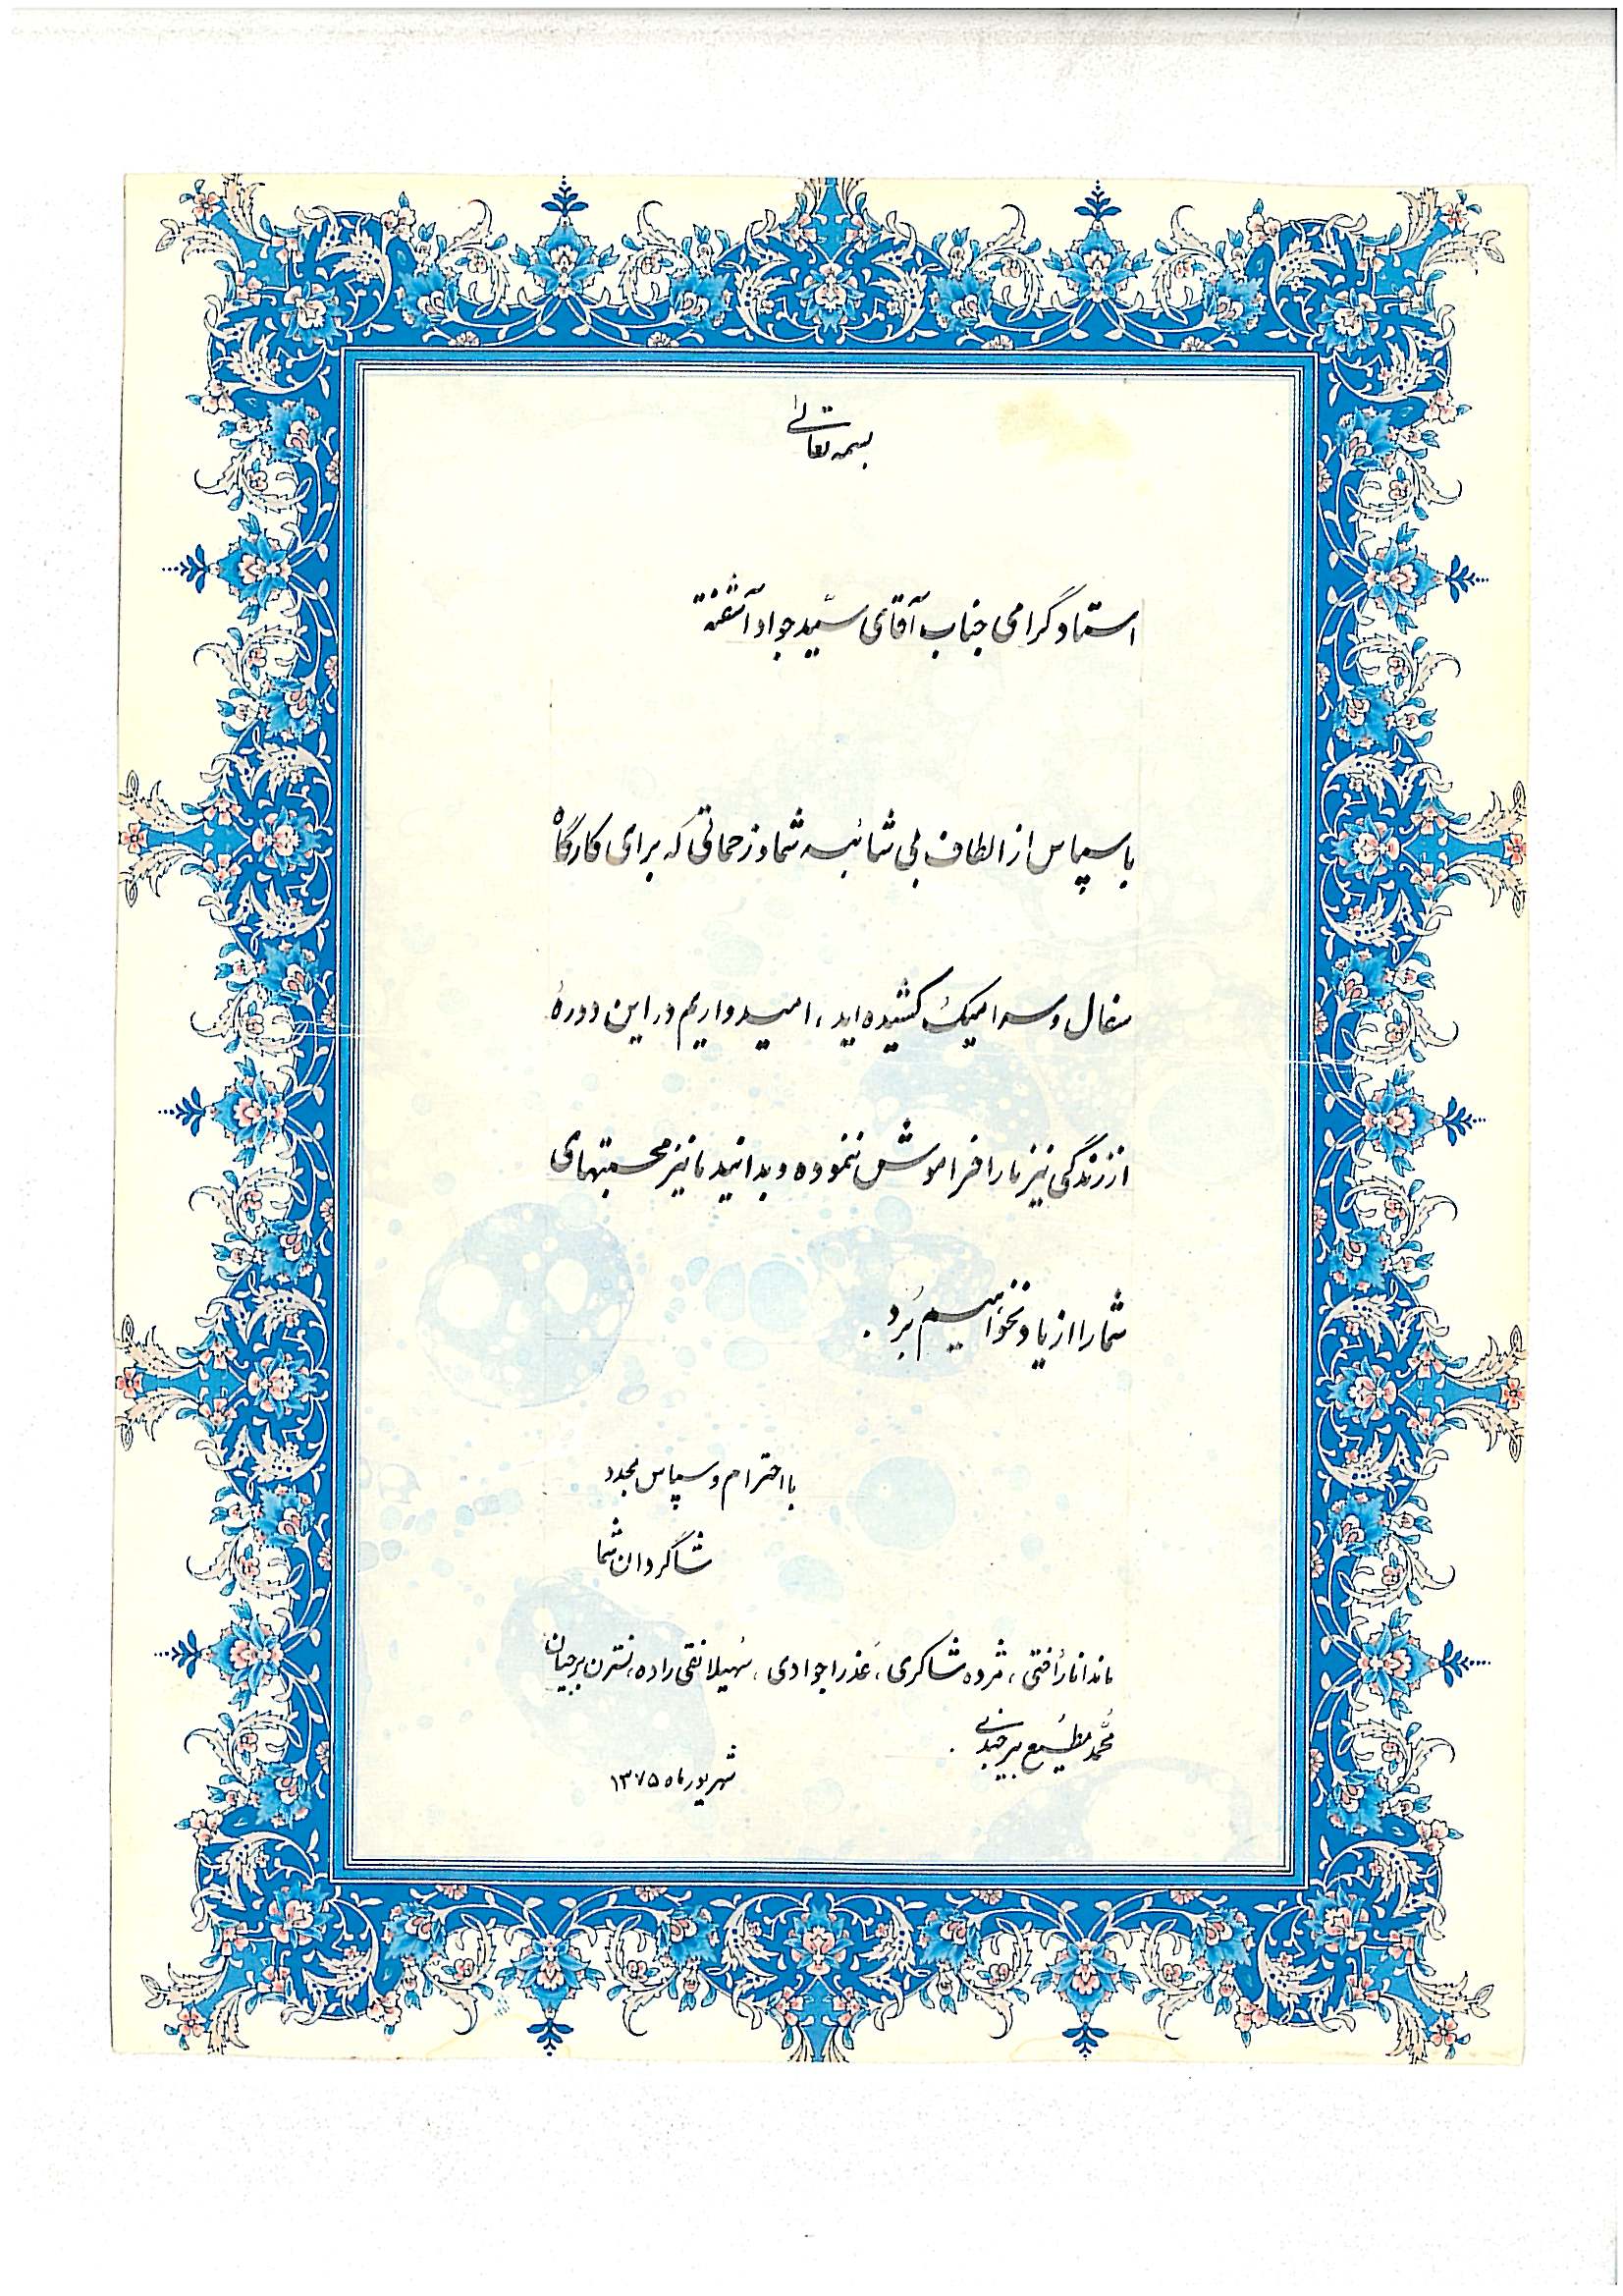 بسمه تعالی
استاد گرامی جناب آقای سیّد جواد آشفته
با سپاس از الطاف بی شائبه شما و زحماتی که برای کارگاه
سفال و سرامیک کشیده اید، امیدواریم در این دورهٔ
از زندگی نیز ما را فراموش ننموده و بدانید ما نیز محبتهای
شما را از یاد نخواهیم بُرد.
با احترام و سپاس مجدد
شاگردان شما
ماندانا رأفتی، مژده شاکری، عَذرا جوادی، سُهیلا نقی زاده، نسترن برجیان
مُحمّد مطیع بیرجندی.
شهریور ماه ۱۳۷۵